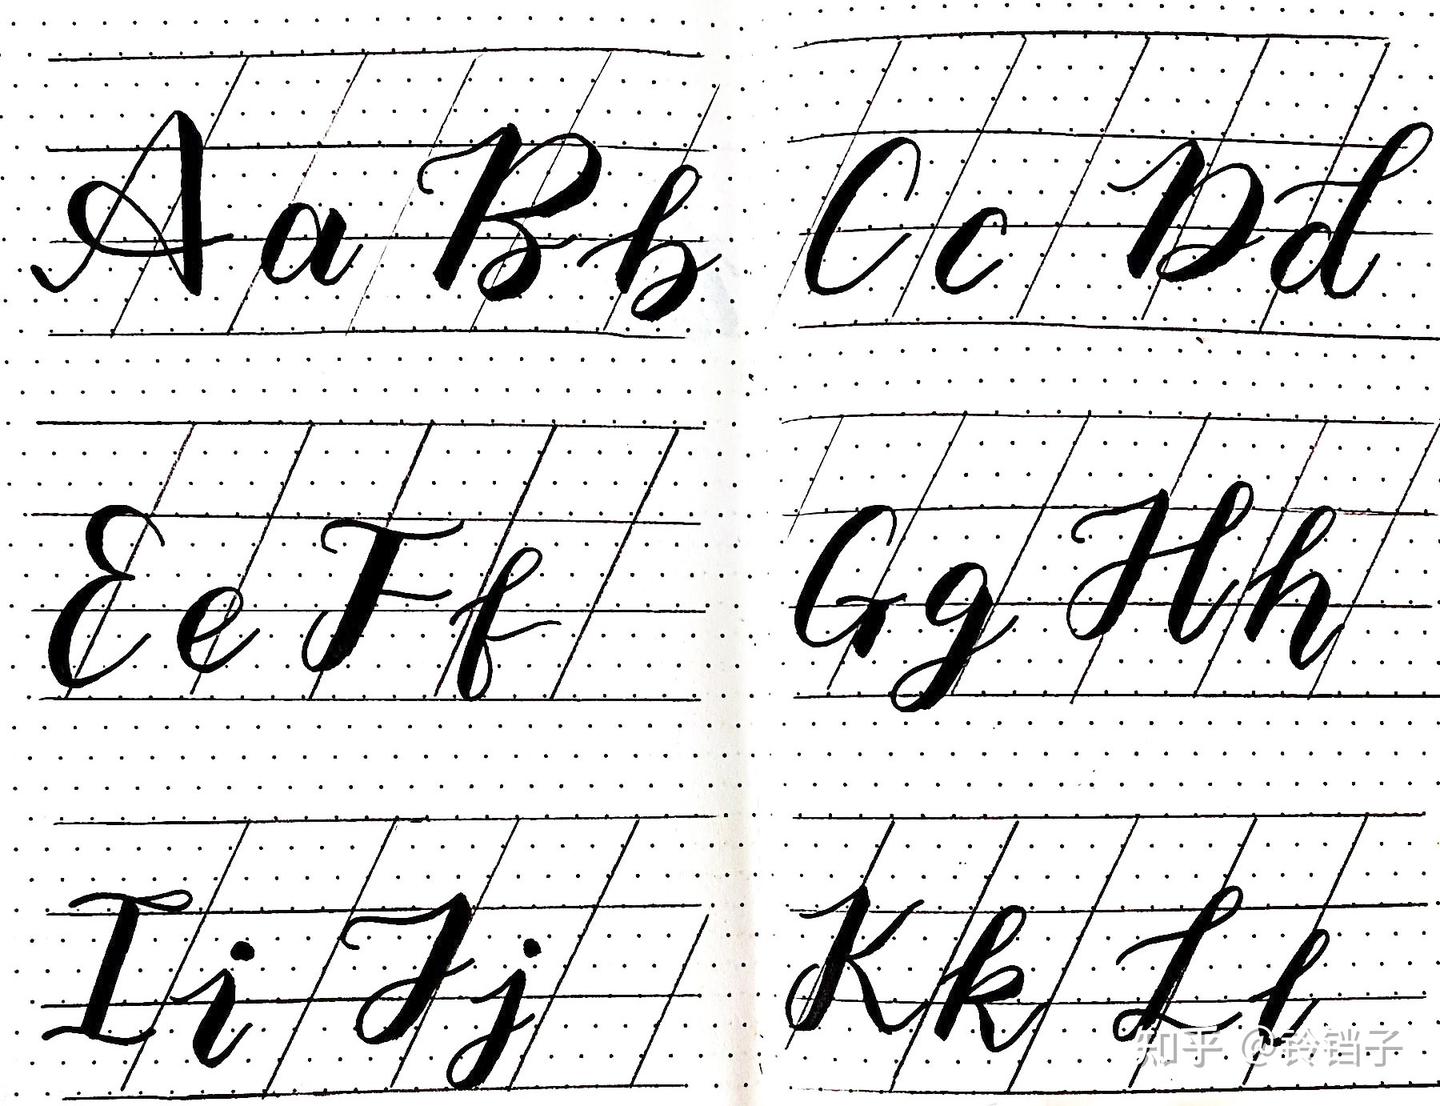 Aa Bb Cc Dd
Ee Ff Gg Hh
Ii Jj Kk Ll
知乎 @铃铛子